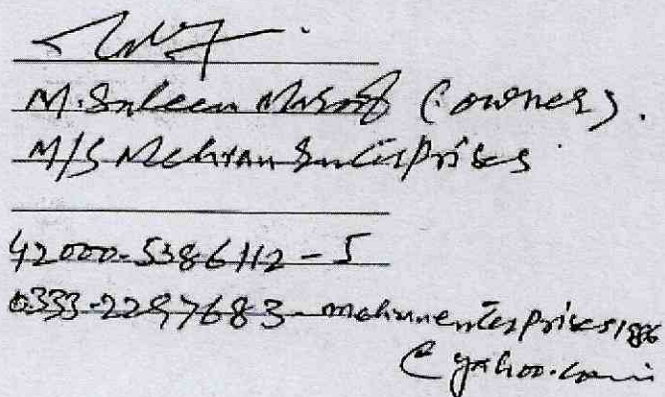 M. Saleem (owner).
M/S Mehran Enterprises
42000-5386112-5
0333-2297683- mehranenterprises1886
@yahoo.com